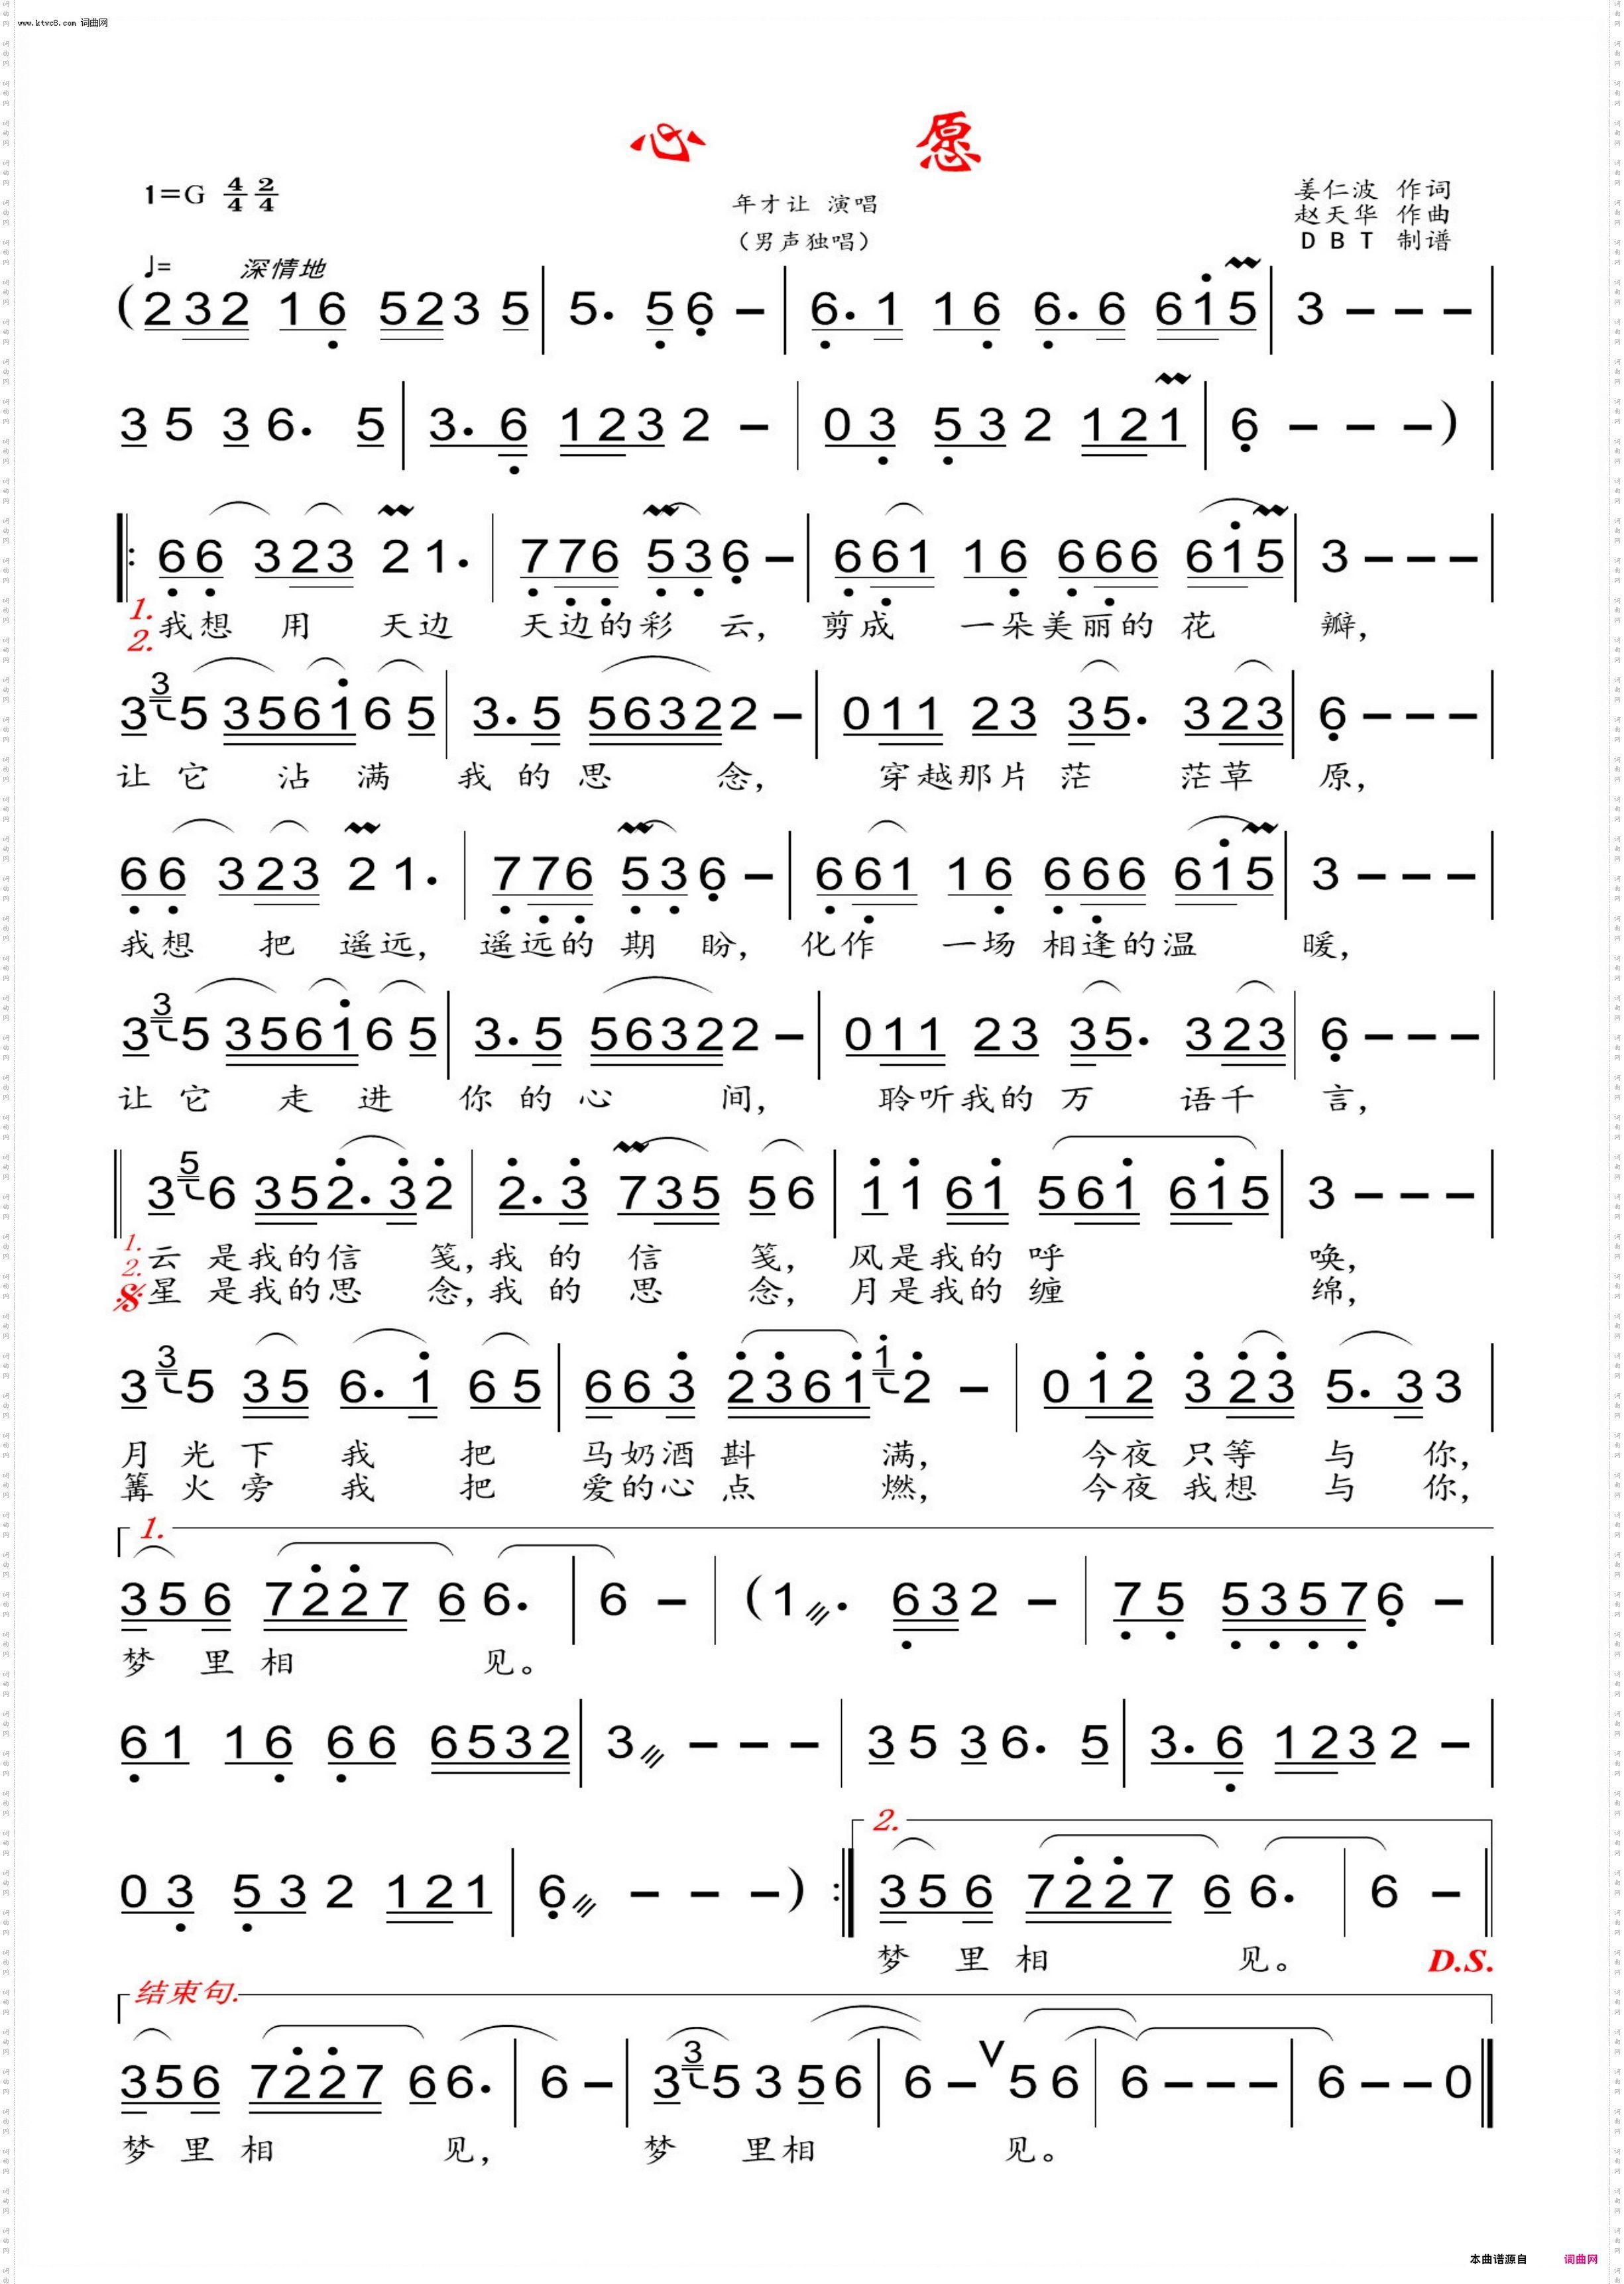 www.ktvc8.com 词曲网
心 愿
1=G 4/4 2/4
年才让 演唱
(男声独唱)
姜仁波 作词
赵天华 作曲
DBT 制谱
♩= 深情地
(232 16 523 5 | 5. 56 - | 6.1 16 6.6 615 | 3 - - - |
35 36. 5 | 3.6 1232 - | 03 532 121 | 6 - - - ) |
|: 66 323 21. | 776 536 - | 661 16 666 615 | 3 - - - |
1.
2. 我想 用 天边 天边的彩 云, 剪成 一朵美丽的 花 瓣,
3 3 5 356165 | 3.5 56322 - | 011 23 35. 323 | 6 - - - |
让 它 沾 满 我 的 思 念, 穿越那片 茫 茫草 原,
66 323 21. | 776 536 - | 661 16 666 615 | 3 - - - |
我想 把 遥远, 遥远的 期 盼, 化作 一场 相逢的温 暖,
3 3 5 356165 | 3.5 56322 - | 011 23 35. 323 | 6 - - - |
让 它 走 进 你 的 心 间, 聆听我的 万 语千 言,
|| 3 5 6 352.32 | 2.3 735 56 | 11 61 561 615 | 3 - - - |
1. 云 是我的信 笺,我 的 信 笺, 风是我的 呼 唤,
2. 星 是我的思 念,我 的 思 念, 月是我的 缠 绵,
3 3 5 35 6.1 65 | 663 2361 1 2 - | 012 323 5.33 |
月 光 下 我 把 马奶酒 斟 满, 今夜 只等 与 你,
篝 火 旁 我 把 爱的心 点 燃, 今夜 我想 与 你,
1.
356 7227 66. | 6 - | (1. 632 - | 75 53576 - |
梦 里 相 见。
61 16 66 6532 | 3 - - - | 35 36. 5 | 3.6 1232 - |
2.
03 532 121 | 6 - - - ) :| 356 7227 66. | 6 - ||
梦 里 相 见。 D.S.
结束句.
356 7227 66. | 6 - | 3 3 5 356 | 6 - V 56 | 6 - - - | 6 - - 0 ||
梦 里 相 见, 梦 里相 见。
本曲谱源自 词曲网